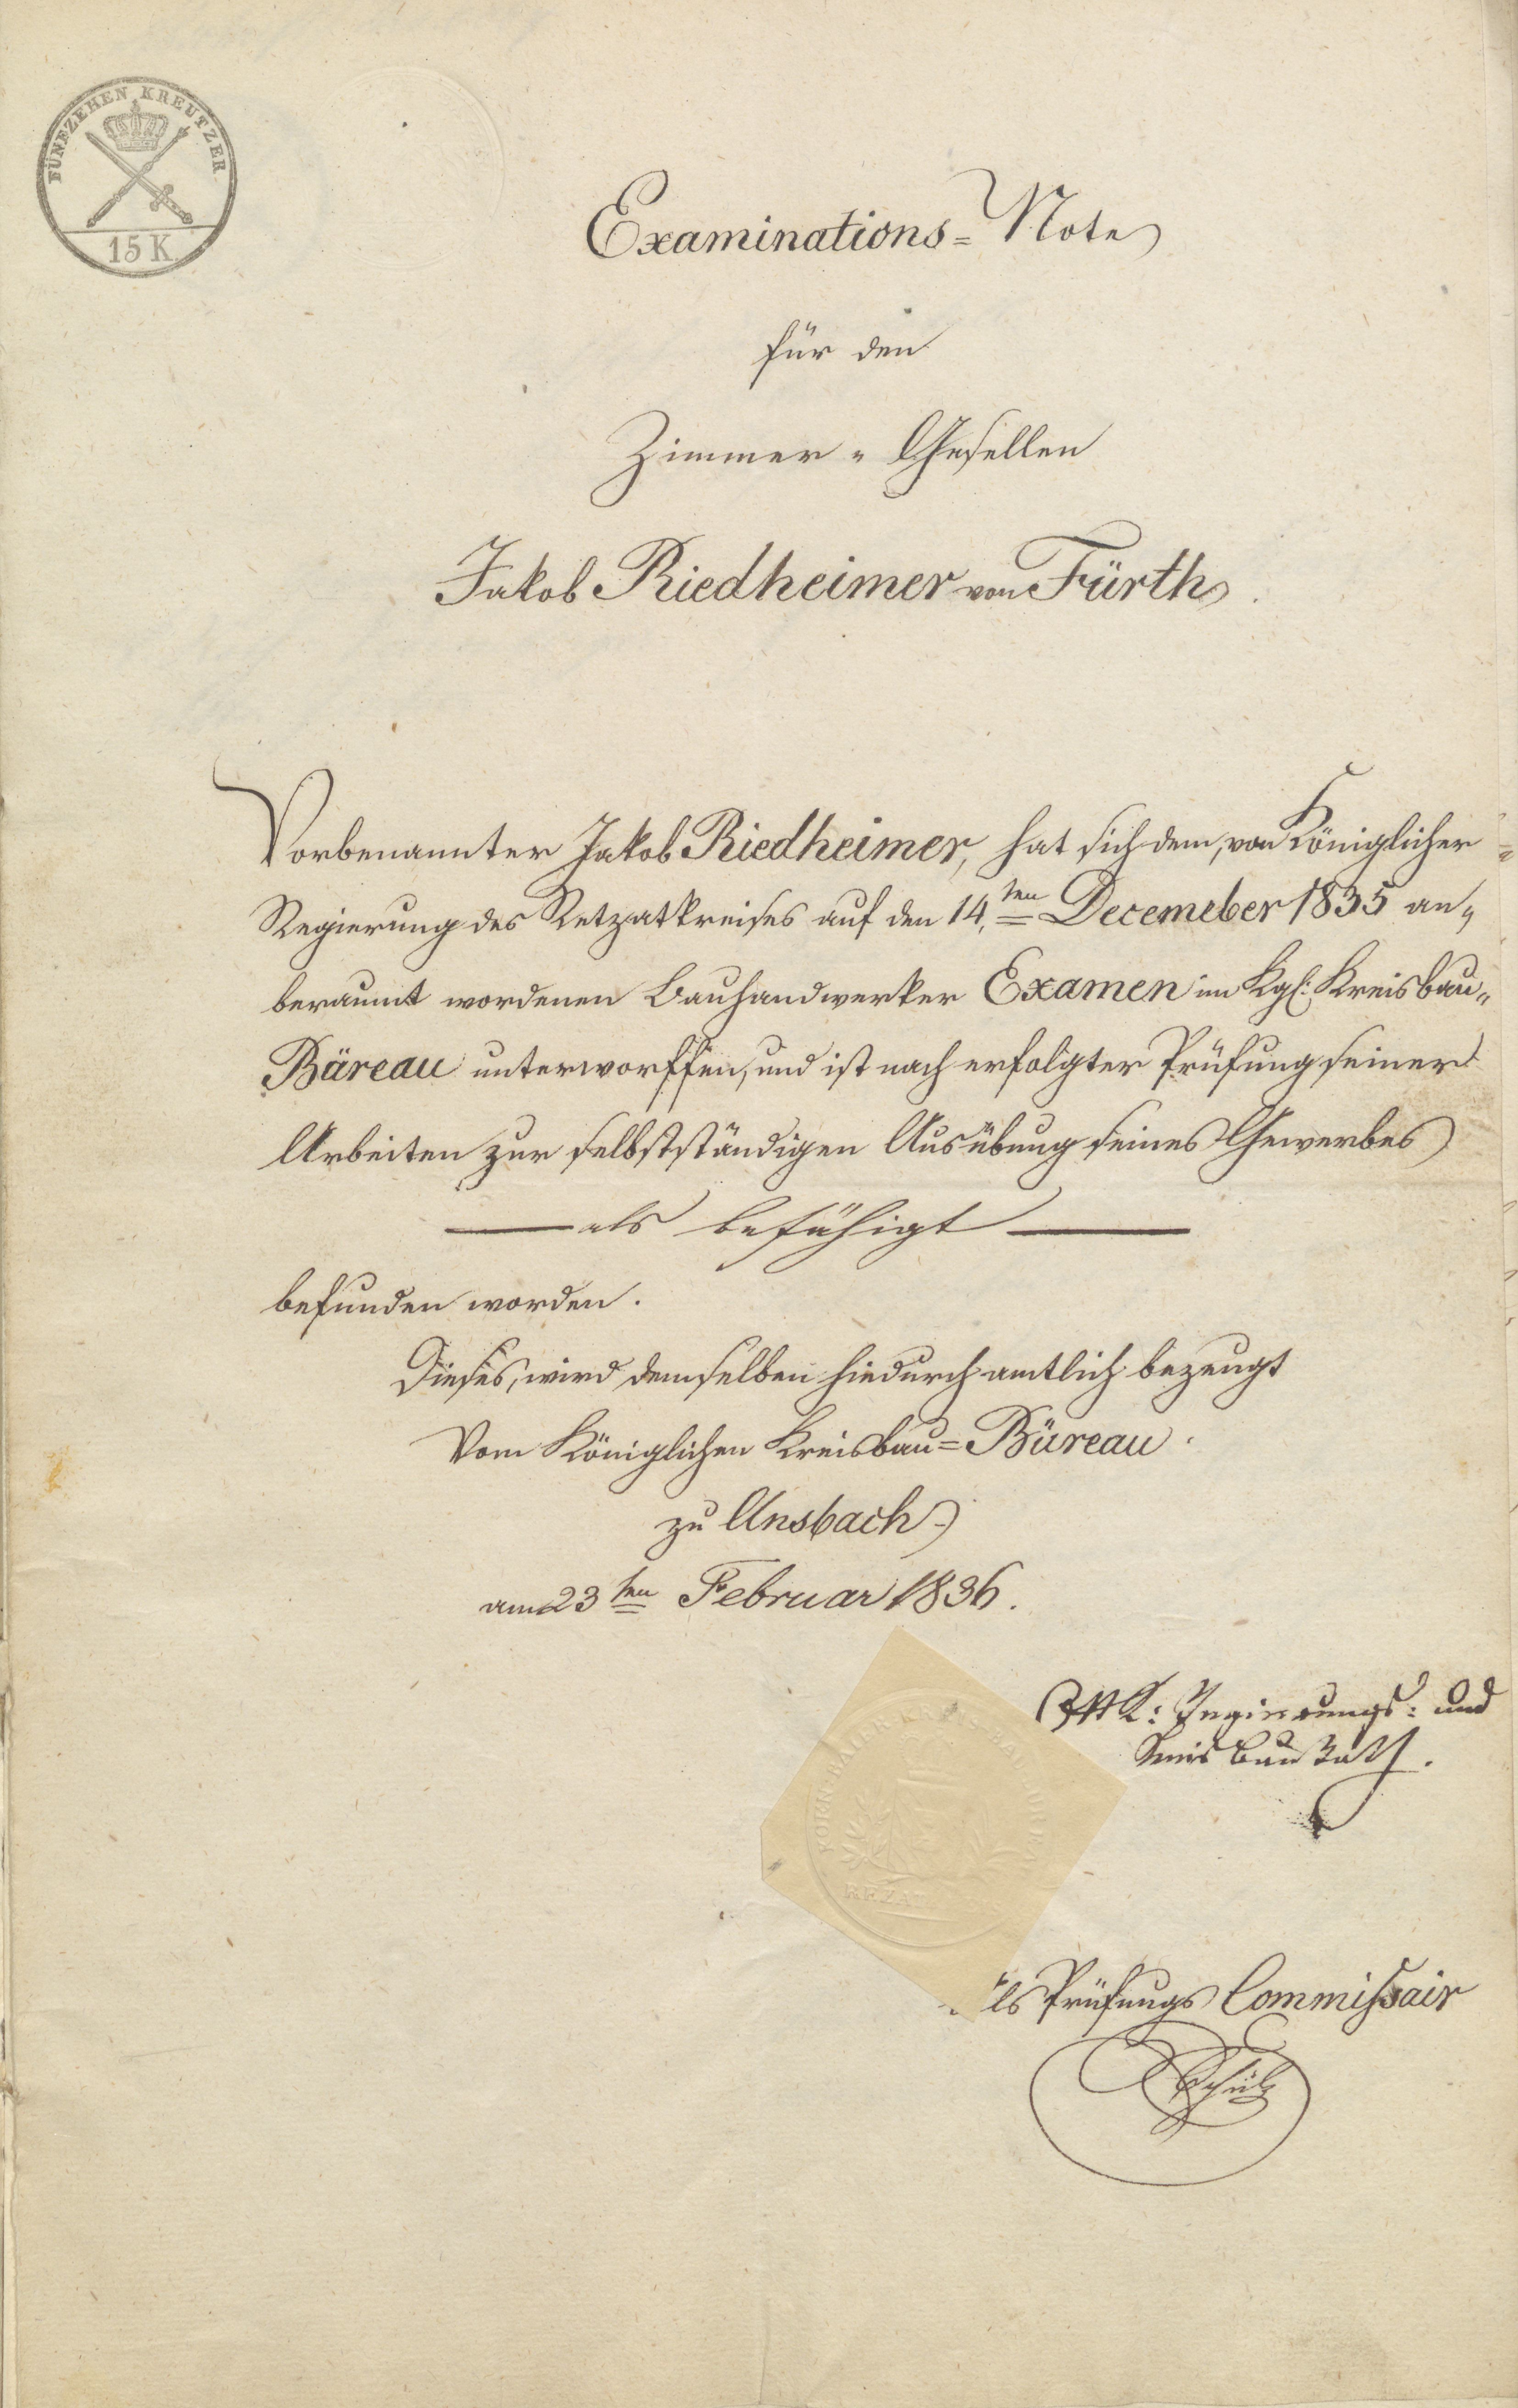 FÜNFZEHEN KREUTZER
15 K
Examinations=Note
für den
Zimmer=Gesellen
Jakob Riedheimer von Fürth.
Vorbenannter Jakob Riedheimer, hat sich dem, von Königlicher
Regierung des Retzatkreises auf den 14.ten Decemeber 1835 an=
beraumt wordenen Bauhandwerker Examen im Kgl: Kreisbau=
Büreau unterworffen, und ist nach erfolgter Prüfung seiner
Arbeiten zur selbstständigen Ausübung seines Gewerbes
— als befähigt —
befunden worden.
Dieses, wird demselben hiedurch amtlich bezeugt
Vom Königlichen Kreisbau=Büreau.
zu Ansbach
am 23ten Februar 1836.
K: Regierungs= und
Kreis Bau Rath.
REZAT
Als Prüfungs Commissair